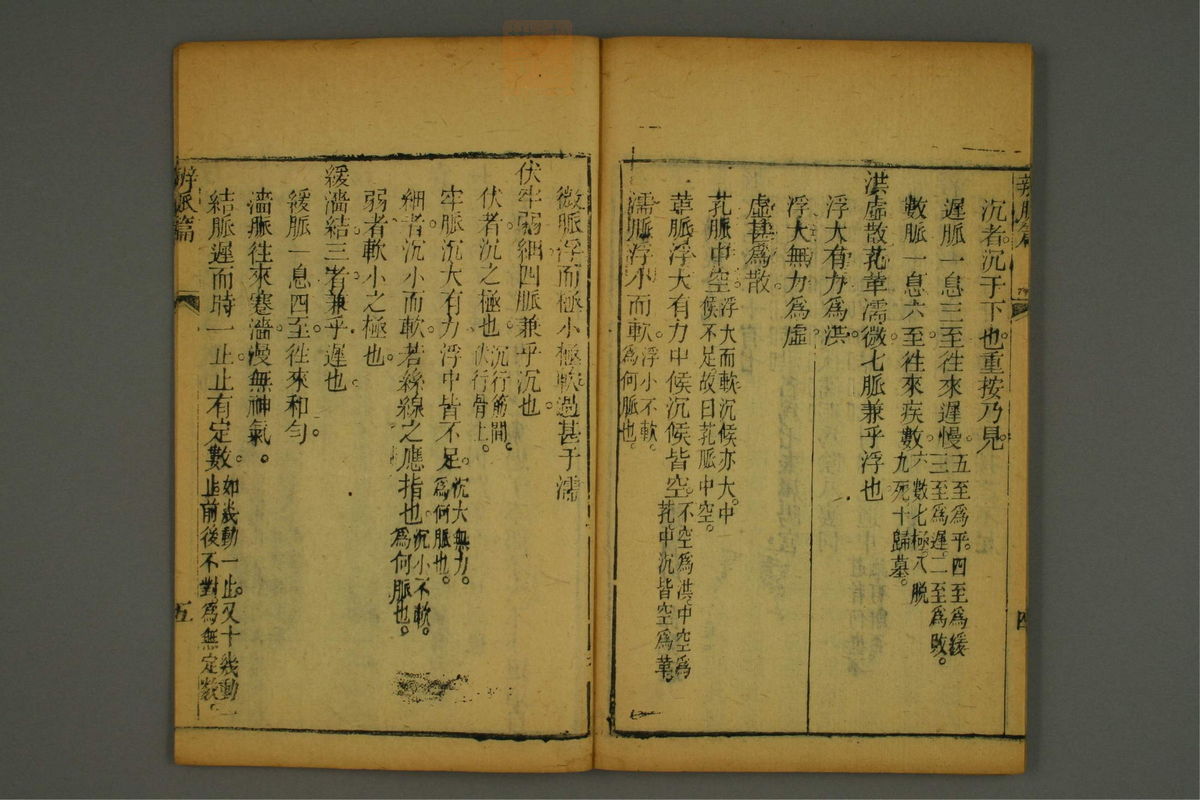 沉者沉于下也重按乃見
遲脈一息三至徃來遲慢。五至爲平。四至爲緩三至爲遲。二至爲敗。
數脈一息六至徃來疾數六數七極。八脫九死十歸墓。
洪虛散芤革濡微七脈兼乎浮也
浮大有力爲洪
浮大無力爲虛
虛甚爲散
芤脈中空。浮大而軟沉候亦大。中候不足故曰芤脈中空。
革脈浮大有力中候沉候皆空。不空爲洪中空爲芤。中沉皆空爲革。
濡脈浮小而軟。浮小不軟。爲何脈也。
微脈浮而極小極軟過甚于濡
伏牢弱細四脈兼乎沉也。
伏者沉之極也沉行筋間。伏行骨上。
牢脈沉大有力浮中皆不足。沉大無力。爲何脈也。
細者沉小而軟若絲線之應指也。沉小不軟。爲何脈也。
弱者軟小之極也。
緩濇結三者兼乎遲也
緩脈一息四至。徃來和勻。
濇脈徃來蹇濇慢無神氣。
結脈遲而時一止止有定數。如幾動一止。又十幾動一止。前後不對爲無定數。
辨脈篇
五